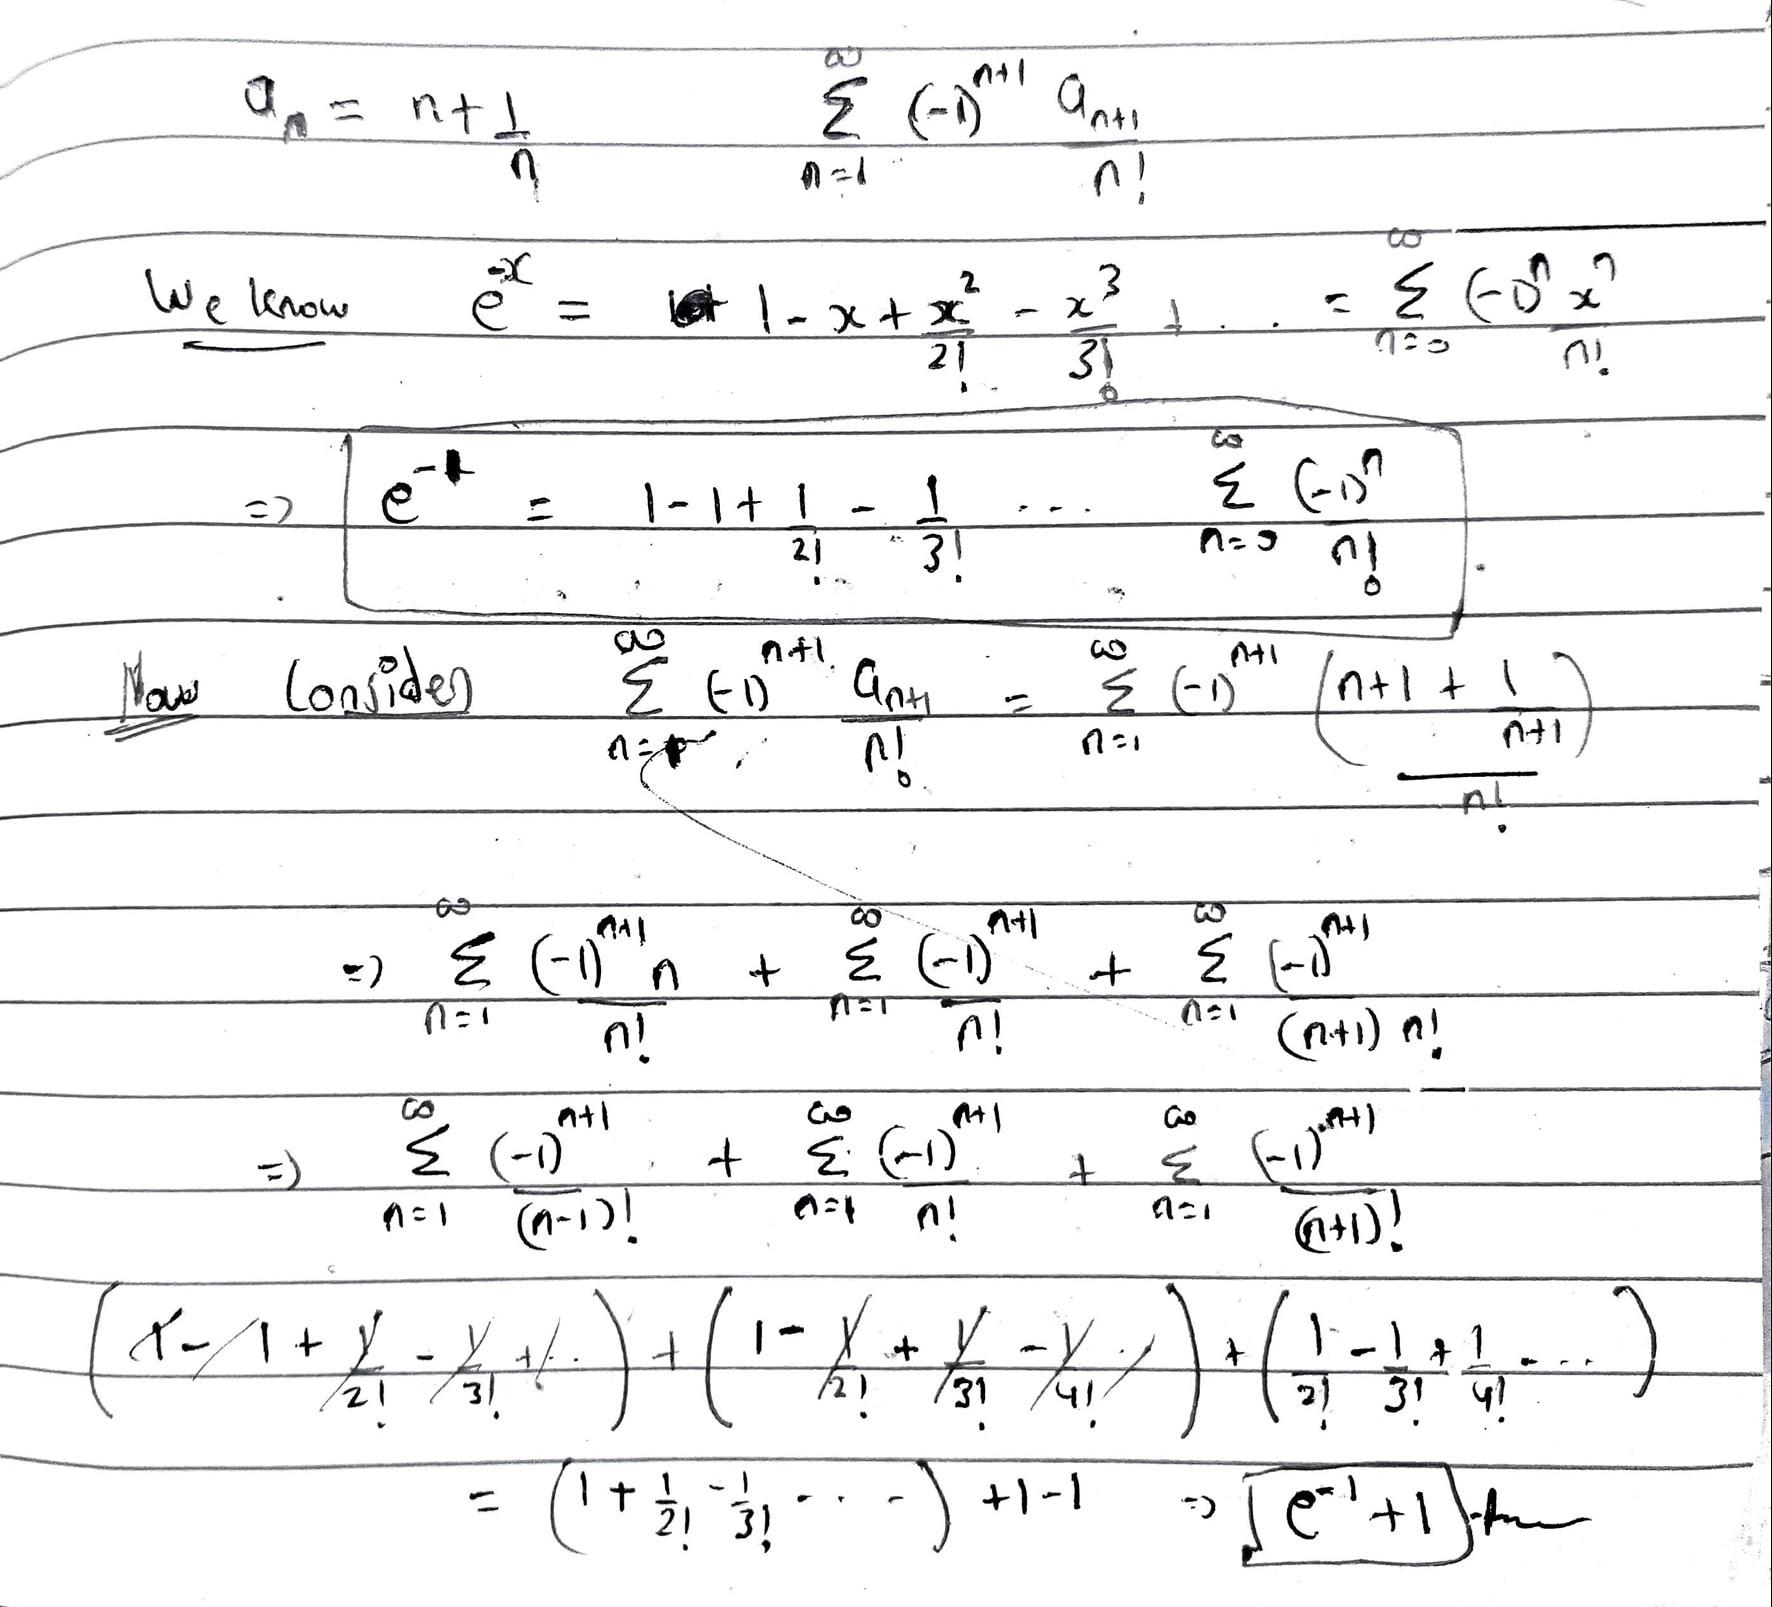 a_n = n + 1/n    ∞ Σ n=1 (-1)^{n+1} a_{n+1}/n!
We know e^{-x} = 1 - x + x^2/2! - x^3/3! + ... = ∞ Σ n=0 (-1)^n x^n/n!
=> e^{-1} = 1 - 1 + 1/2! - 1/3! ... ∞ Σ n=0 (-1)^n/n!
Now Consider ∞ Σ n=1 (-1)^{n+1} a_{n+1}/n! = ∞ Σ n=1 (-1)^{n+1} (n+1 + 1/(n+1))/n!
=> ∞ Σ n=1 (-1)^{n+1} n/n! + ∞ Σ n=1 (-1)^{n+1}/n! + ∞ Σ n=1 (-1)^{n+1}/((n+1) n!)
=> ∞ Σ n=1 (-1)^{n+1}/(n-1)! + ∞ Σ n=1 (-1)^{n+1}/n! + ∞ Σ n=1 (-1)^{n+1}/(n+1)!
(1 - 1 + 1/2! - 1/3! + ..) + (1 - 1/2! + 1/3! - 1/4! ..) + (1/2! - 1/3! + 1/4! - ...)
= (1 + 1/2! - 1/3! - ...) + 1 - 1 => e^{-1} + 1